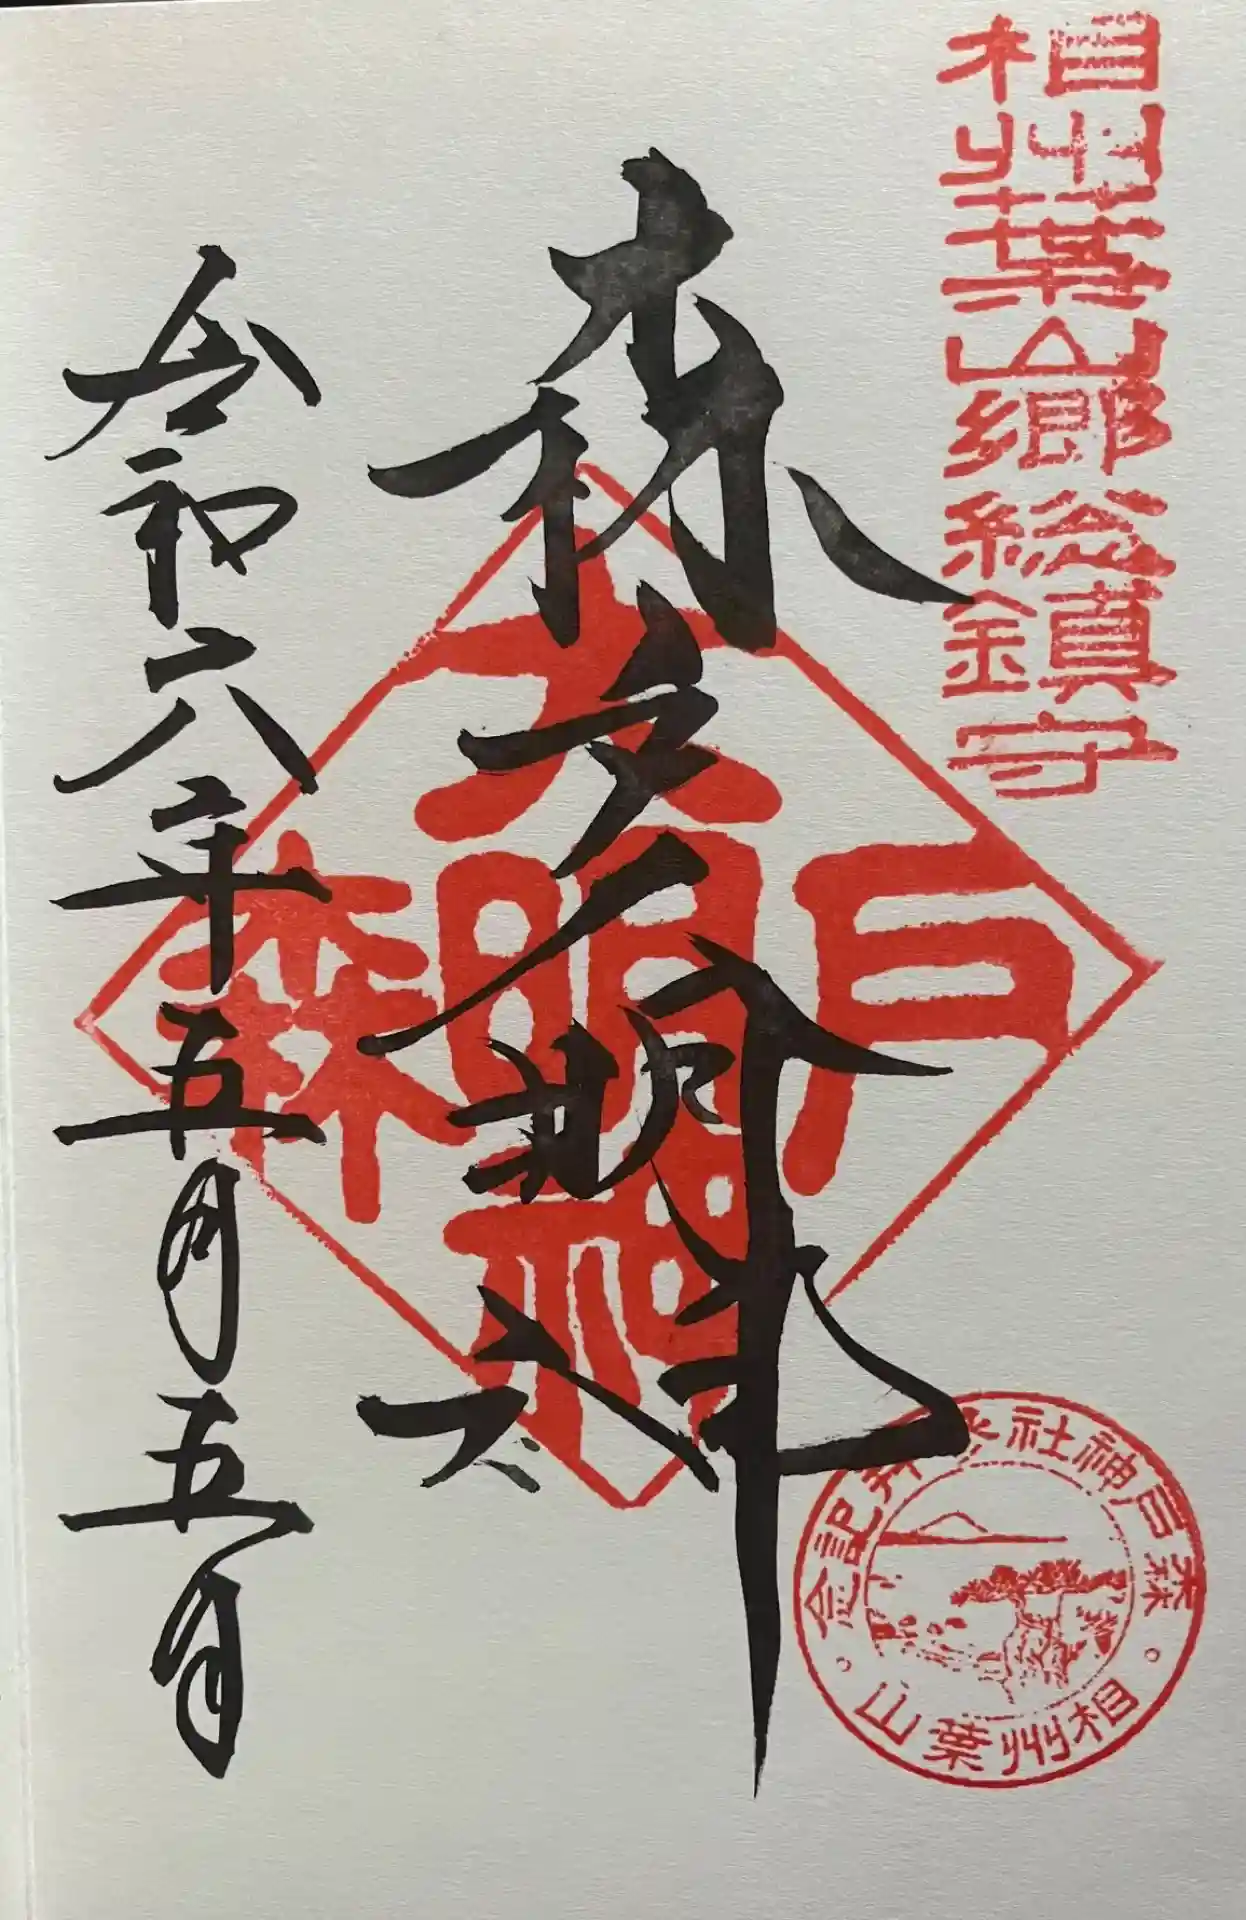 相州葉山郷総鎮守
森戸大明神
令和六年五月五日
森戸大明神
森戸神社参拝記念
相州葉山